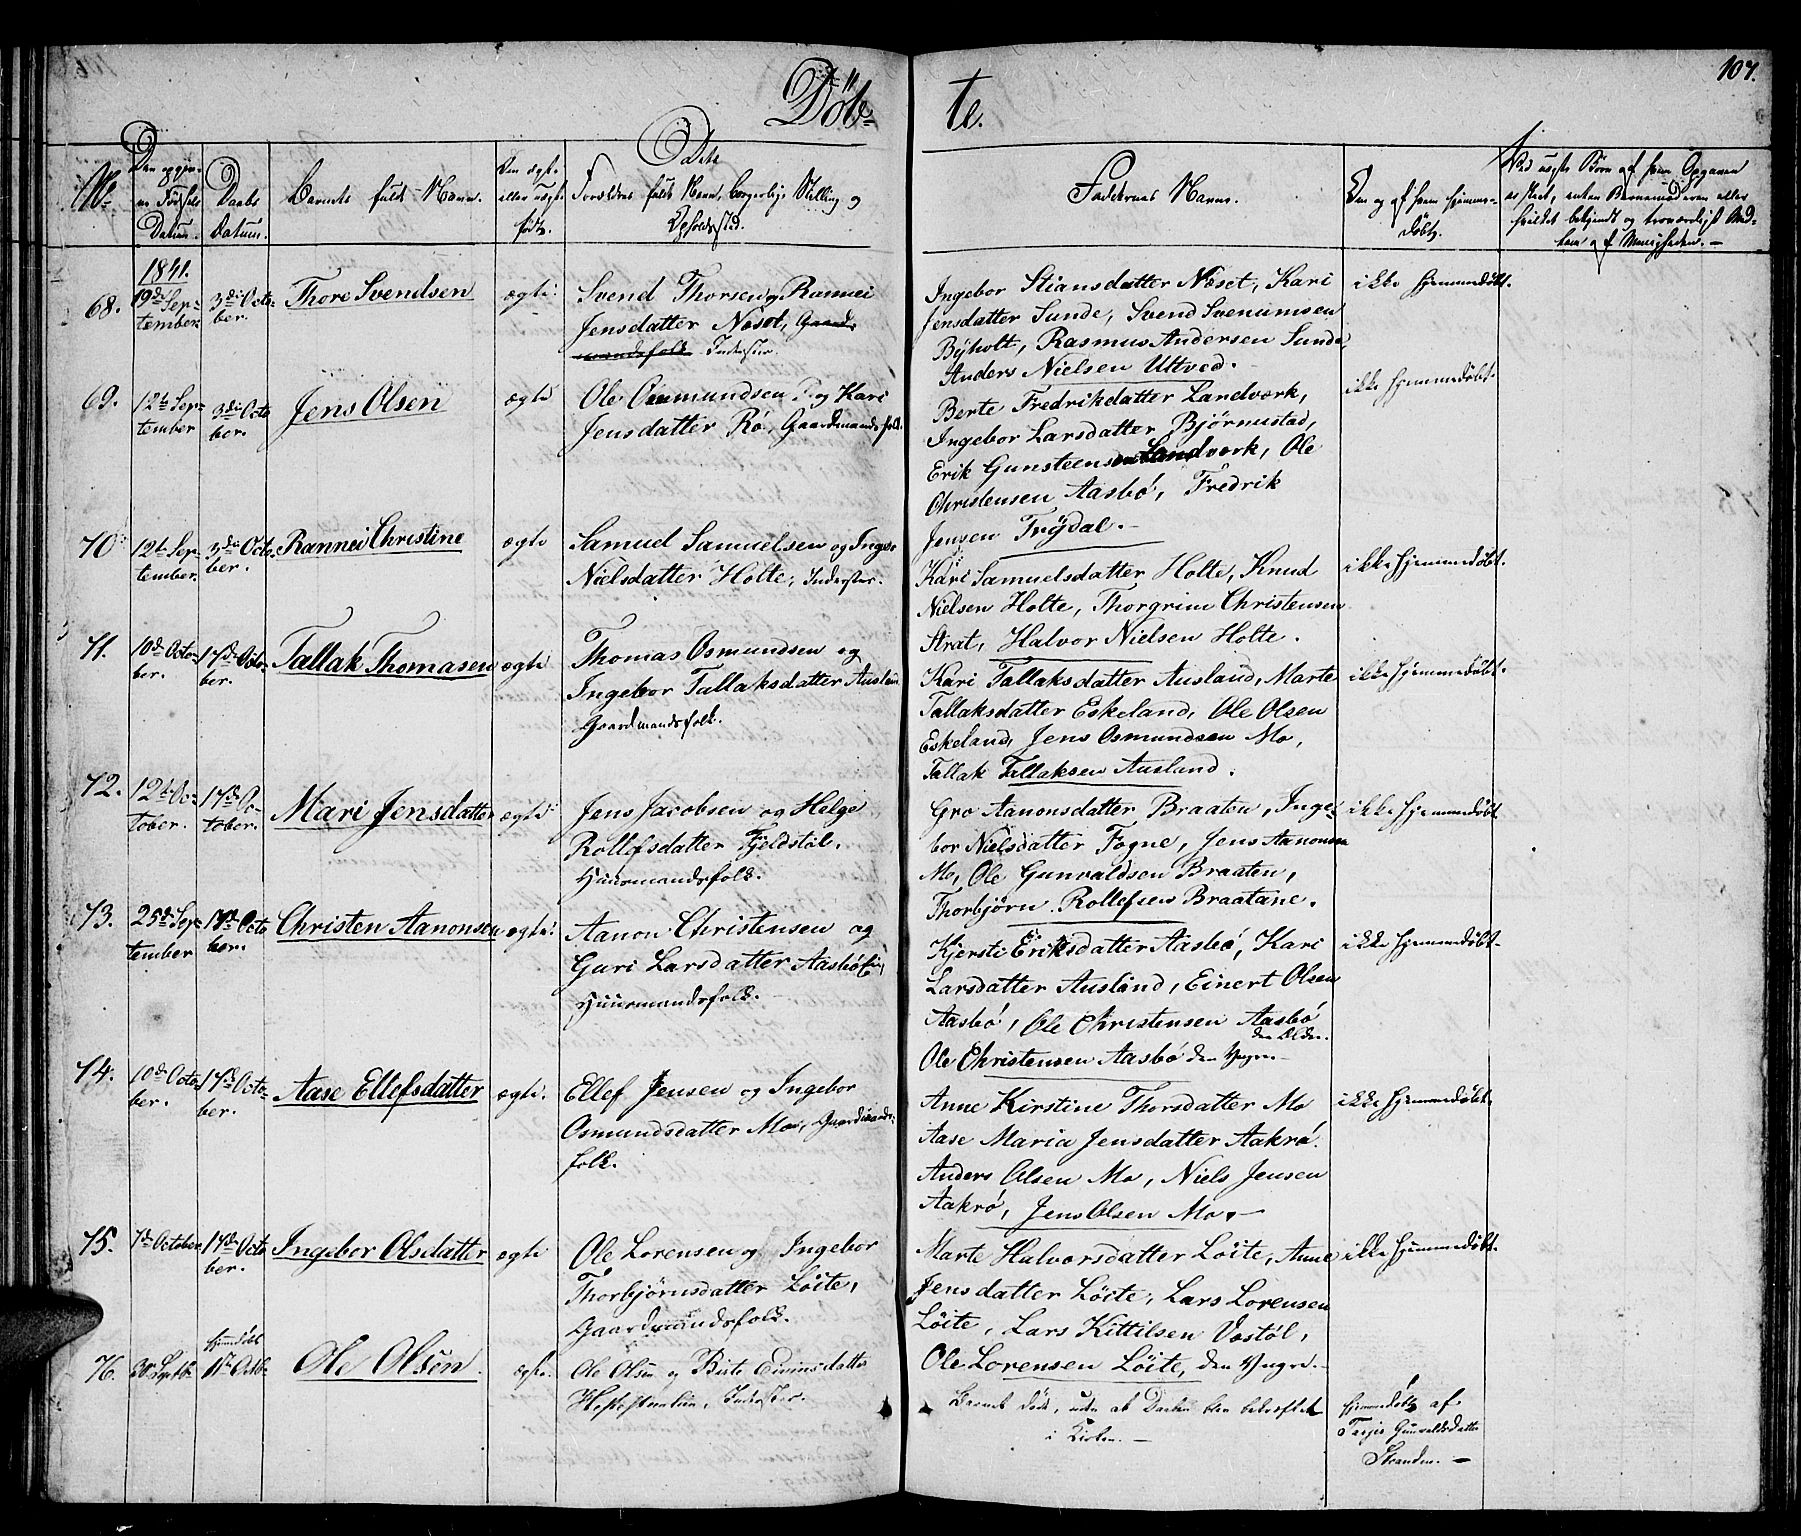 107.
Døb-
te.
Dets
No
Den opgivne Fødsels Datum.
Daabs Datum.
Barnets fulde Navn.
Den ægte eller uægte fødte.
Forældres fulde Navn, borgerlig Stilling og Opholdssted.
Faddernes Navne.
1841.
68.
19de September.
3die October.
Thore Svendsen
ægte
Svend Thorsen og Rannei
Jensdatter Nøset, Gaard-
mandsfolk Inderster.
Ingebor Stiansdatter Nøset, Kari
Jensdatter Sunde, Svend Svenumsen
Byholt, Rasmus Andersen Sunde,
Anders Nielsen Utved.
ikke hjemmedøbt.
69.
12te September
3die October.
Jens Olsen
ægte
Ole Osmundsen og Kari
Jensdatter Rø, Gaardmandsfolk.
Berte Fredrikdatter Landværk,
Ingebor Larsdatter Bjørnustad,
Erik Gunsteensen Landværk, Ole
Christensen Aasbø, Fredrik
Jensen Frøydal.
ikke hjemmedøbt.
70.
12te September.
3die October.
Rannei Christine
ægte
Samuel Samuelsen og Inge-
Nielsdatter Holte, Inderster.
Kari Samuelsdatter Holte, Knud
Nielsen Holte, Thorgrim Christensen
Strat, Halvor Nielsen Holte.
ikke hjemmedøbt.
71.
10de October.
17de October.
Tallak Thomasen
ægte
Thomas Osmundsen og
Ingebor Tallaksdatter Ausland
Gaardmandsfolk.
Kari Tallaksdatter Ausland, Marte
Tallaksdatter Eskeland, Ole Olsen
Eskeland, Jens Osmundsen Mo,
Tallak Tallaksen Ausland.
ikke hjemmedøbt.
72.
12te October.
17de October.
Mari Jensdatter
ægte
Jens Jacobsen og Helge
Rollefsdatter Fjeldstøl.
Huusmandsfolk.
Gro Aanonsdatter Braaten, Inge-
bor Nielsdatter Fogne, Jens Aanonsen
Mo, Ole Gunvaldsen Braaten,
Thorbjörn Rollefsen Braatane.
ikke hjemmedøbt
73.
25de September
17de October.
Christen Aanonsen
ægte.
Aanon Christensen og
Guri Larsdatter Aasbø
Huusmandsfolk.
Kjersti Eriksdatter Aasbø, Kari
Larsdatter Ausland, Einert Olsen
Aasbø, Ole Christensen Aasbø
den Ældre.
Ole Christensen Aasbø den Yngre.
ikke hjemmedøbt.
74.
10de October.
17de October.
Aase Ellefsdatter
ægte.
Ellef Jensen og Ingebor
Osmundsdatter Mo, Gaardmands-
folk.
Anne Kirstine Thorsdatter Mo
Aase Maria Jensdatter Aakrø.
Anders Olsen Mo, Niels Jensen
Aakrø, Jens Olsen Mo.
ikke hjemmedøbt.
75.
7de October.
17de October.
Ingebor Olsdatter
ægte
Ole Lorensen og Ingebor
Thorbjørnsdatter Løite,
Gaardmandsfolk.
Marte Halvorsdatter Løite, Anne
Jensdatter Løite, Lars Lorensen
Løite, Lars Kittilsen Vostøl,
Ole Lorensen Løite, den Yngre.
ikke hjemmedøbt.
76.
30 Septbr
hjemmedøbt
Octbr
Ole Olsen
ægte.
Ole Olsen og Birte Eivinsdatter
Inderster.
Barnet døde, uden at Daaben blev bekræftet
i Kirken.
hjemmedøbt af
Tarjer Gunvaldsdatter
Stranden.